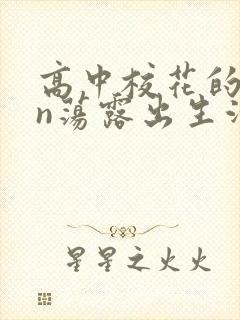 高中校花的
n荡露出生
星星之火火